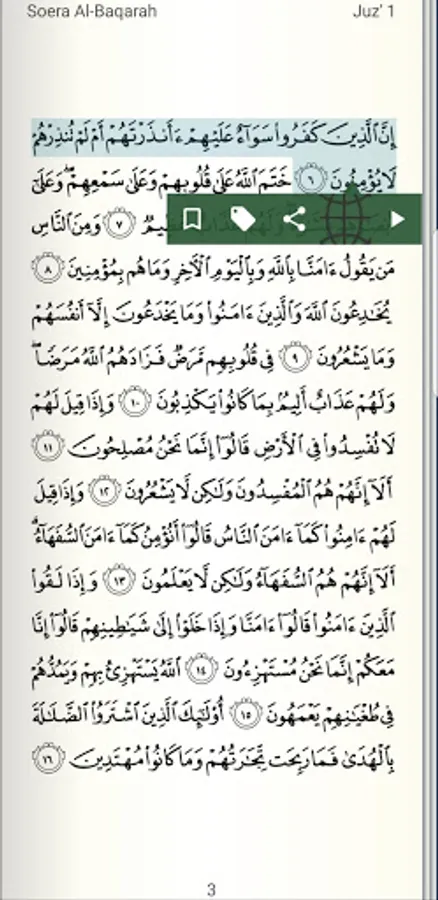 Soera Al-Baqarah
Juz' 1
إِنَّ ٱلَّذِينَ كَفَرُوا۟ سَوَآءٌ عَلَيْهِمْ ءَأَنذَرْتَهُمْ أَمْ لَمْ تُنذِرْهُمْ
لَا يُؤْمِنُونَ ٦ خَتَمَ ٱللَّهُ عَلَىٰ قُلُوبِهِمْ وَعَلَىٰ سَمْعِهِمْ ۖ وَعَلَىٰٓ
٧ وَمِنَ ٱلنَّاسِ
مَن يَقُولُ ءَامَنَّا بِٱللَّهِ وَبِٱلْيَوْمِ ٱلْءَاخِرِ وَمَا هُم بِمُؤْمِنِينَ ٨
يُخَٰدِعُونَ ٱللَّهَ وَٱلَّذِينَ ءَامَنُوا۟ وَمَا يَخْدَعُونَ إِلَّآ أَنفُسَهُمْ
وَمَا يَشْعُرُونَ ٩ فِى قُلُوبِهِم مَّرَضٌ فَزَادَهُمُ ٱللَّهُ مَرَضًا ۖ
وَلَهُمْ عَذَابٌ أَلِيمٌۢ بِمَا كَانُوا۟ يَكْذِبُونَ ١٠ وَإِذَا قِيلَ لَهُمْ
لَا تُفْسِدُوا۟ فِى ٱلْأَرْضِ قَالُوٓا۟ إِنَّمَا نَحْنُ مُصْلِحُونَ ١١
أَلَآ إِنَّهُمْ هُمُ ٱلْمُفْسِدُونَ وَلَٰكِن لَّا يَشْعُرُونَ ١٢ وَإِذَا قِيلَ
لَهُمْ ءَامِنُوا۟ كَمَآ ءَامَنَ ٱلنَّاسُ قَالُوٓا۟ أَنُؤْمِنُ كَمَآ ءَامَنَ ٱلسُّفَهَآءُ ۗ
أَلَآ إِنَّهُمْ هُمُ ٱلسُّفَهَآءُ وَلَٰكِن لَّا يَعْلَمُونَ ١٣ وَإِذَا لَقُوا۟
ٱلَّذِينَ ءَامَنُوا۟ قَالُوٓا۟ ءَامَنَّا وَإِذَا خَلَوْا۟ إِلَىٰ شَيَٰطِينِهِمْ قَالُوٓا۟ إِنَّا
مَعَكُمْ إِنَّمَا نَحْنُ مُسْتَهْزِءُونَ ١٤ ٱللَّهُ يَسْتَهْزِئُ بِهِمْ وَيَمُدُّهُمْ
فِى طُغْيَٰنِهِمْ يَعْمَهُونَ ١٥ أُو۟لَٰٓئِكَ ٱلَّذِينَ ٱشْتَرَوُا۟ ٱلضَّلَٰلَةَ
بِٱلْهُدَىٰ فَمَا رَبِحَت تِّجَٰرَتُهُمْ وَمَا كَانُوا۟ مُهْتَدِينَ ١٦
3